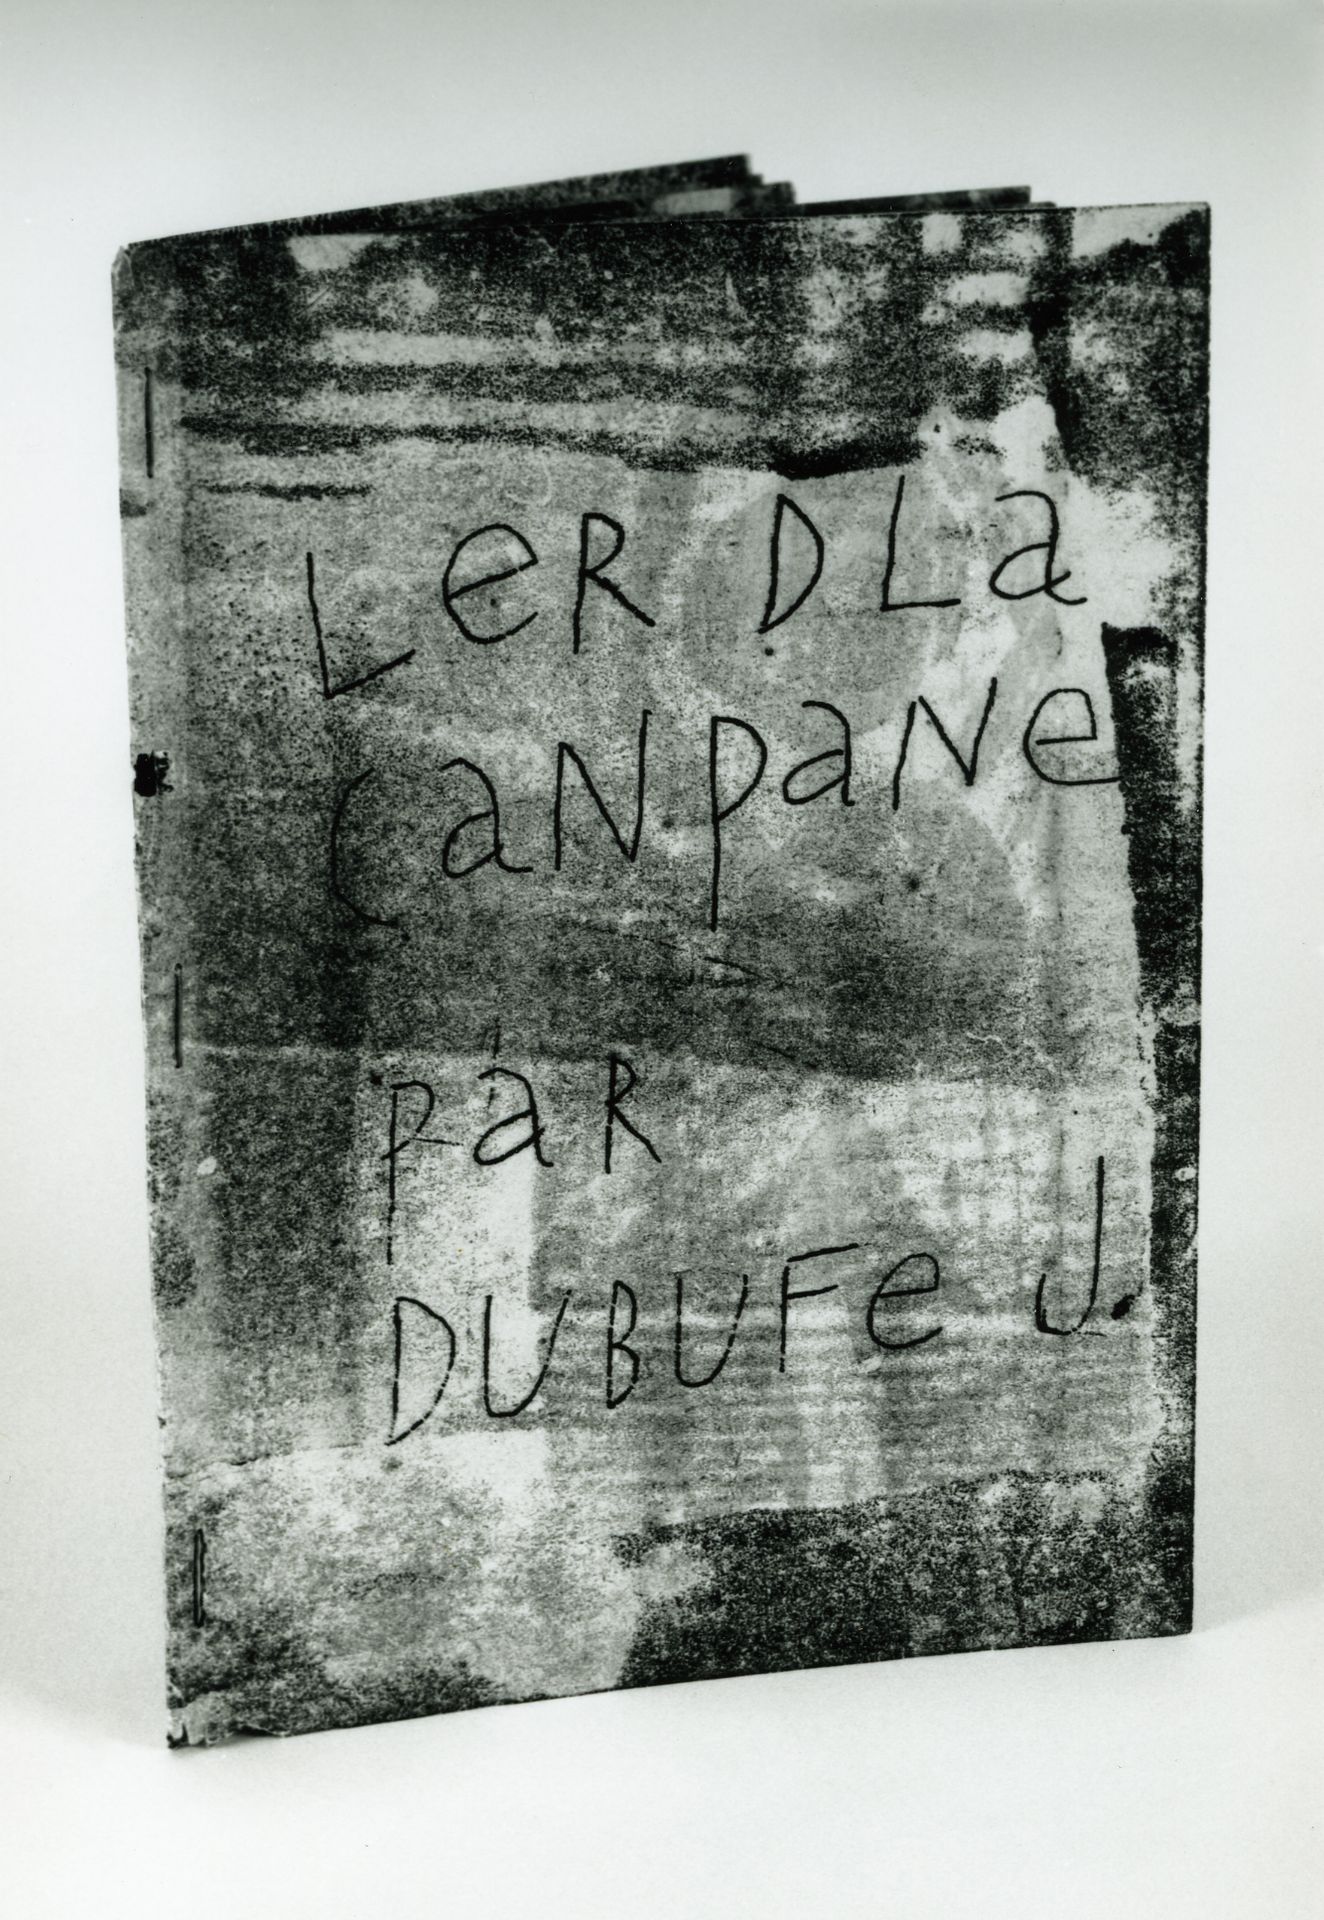 LeR DLa
CaNPaNe
PaR
DUBUFe J.